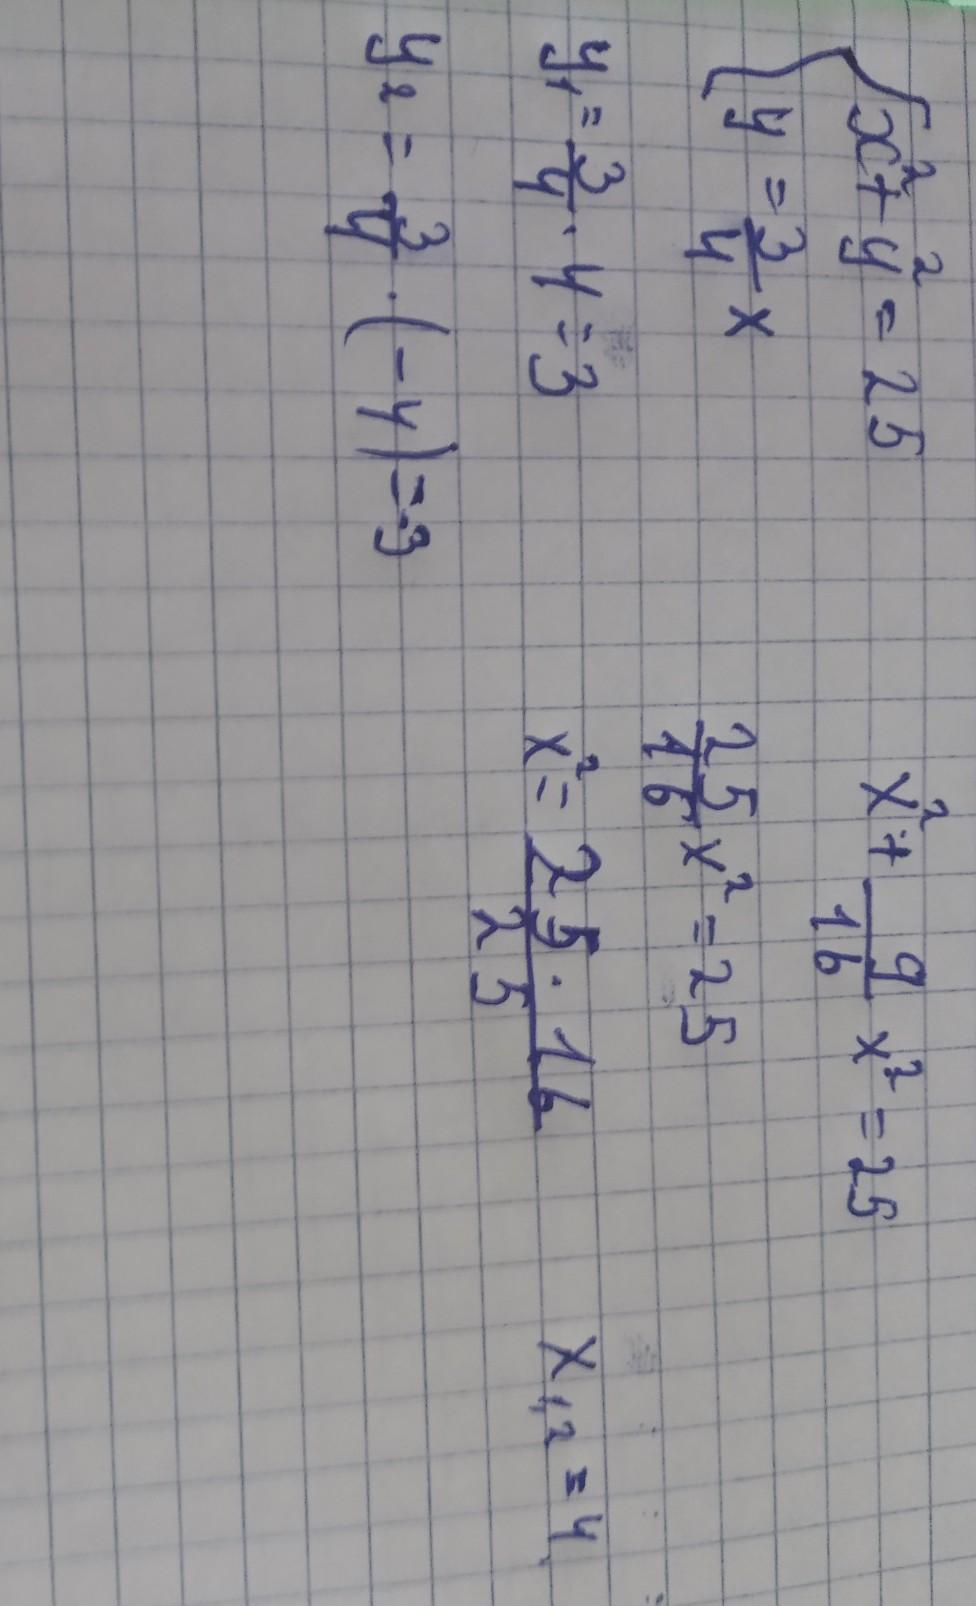 { x² + y² = 25
y = 3/4 x
y₁ = 3/4 · 4 = 3
y₂ = 3/4 · (-4) = -3
x² + 9/16 x² = 25
25/16 x² = 25
x² = 25 · 16 / 25
x₁,₂ = 4